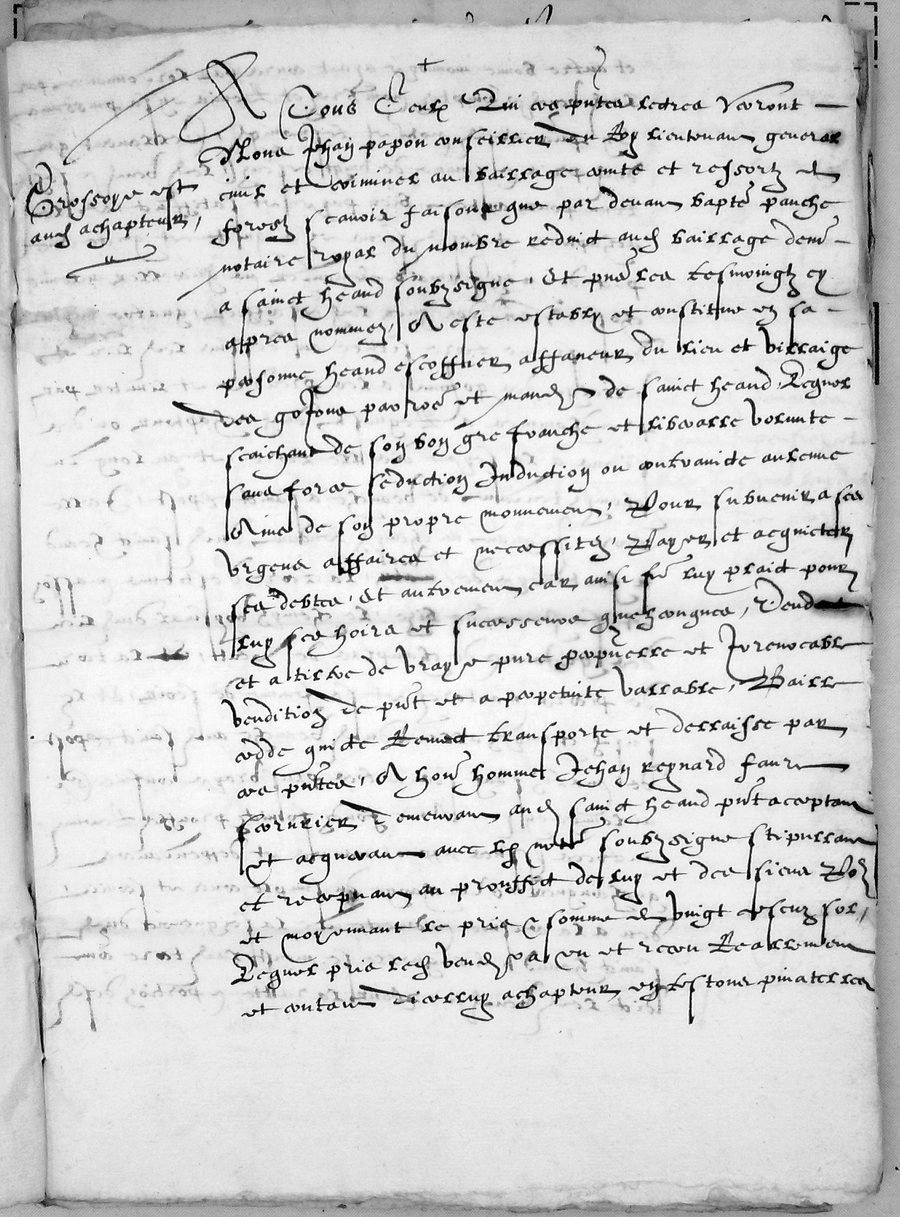 A Tous Ceulx Qui ces pntes lectres verront
Nous Jehan papon conseillier du Roy lieutenant general
Grossoye est
civil et criminel au bailliage conte et ressortz de
aud achapteur,
forestz scavoir faisons que par devant bapte panche
notaire royal du nombre reduict aud bailliage demt
a sainct heand soubzsigne, Et pns les tesmoingtz cy
apres nommez, A este estably et constitue en sa
personne heand escoffier affaneur du lieu et villaige
des gojons parroe et mandt de sainct heand, Lequel
scaichant de son bon gre franche et liberalle volunte
sans force seduction Induction ou contraincte aulcune
Ains de son propre mouvement, Pour subvenir a ses
urgens affaires et necessitez, Payer et acquicter
ses debtes, Et aultrement car ainsi fe luy plaict pour
luy ses hoirs et successeurs quelzconques, Vend
et a tiltre de vraye pure perpetuelle et Irrevocable
vendition de pnt et a perpetuite vallable, Baille
cedde quicte Remect transporte et dellaisse par
ces pntes, A honr homme Jehan reynard faure
serrurier demeurant aud sainct heand pnt acceptant
et acquerant avec led notre soubzsigne stipullant
et recepvant au prouffict de luy et des siens Po
et moyennant le pris & somme de vingt escuz sol,
Lequel pris led vendr a eu et receu Reallement
et contant dicelluy achapteur en testons pinatelles